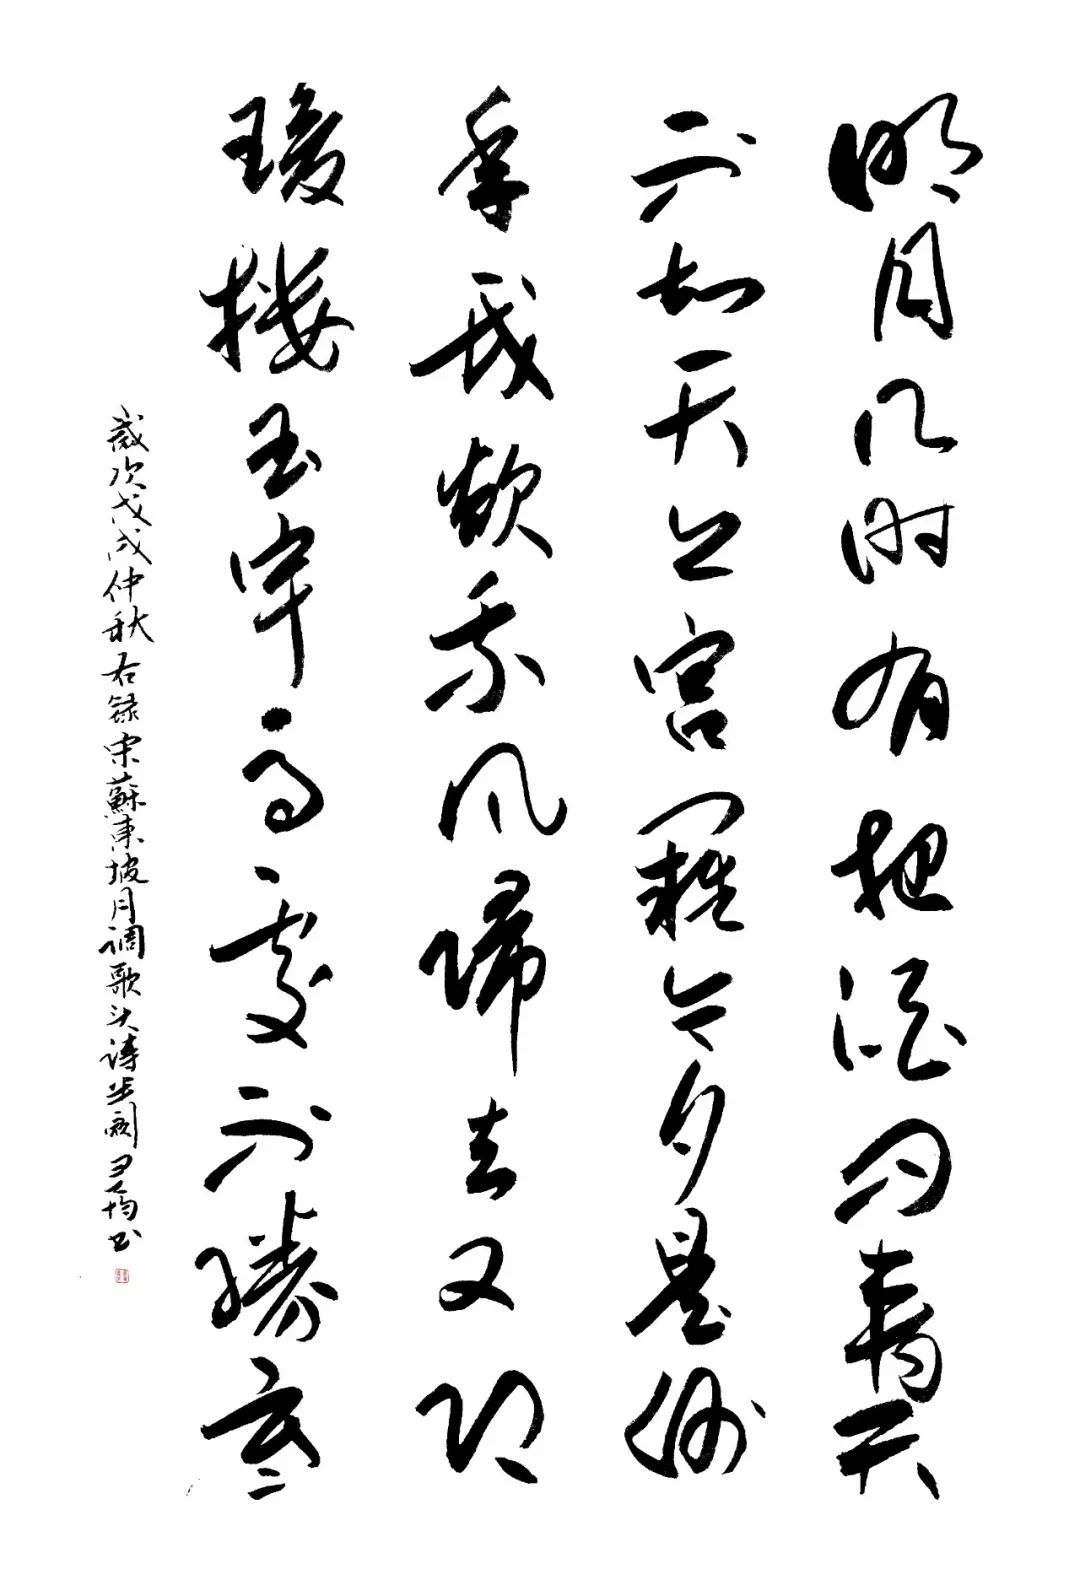 明月几时有把酒问青天
不知天上宫阙今夕是何
年我欲乘风歸去又恐
瓊楼玉宇高處不勝寒
歲次戊戌仲秋右録宋蘇東坡月调歌头诗半阕 均书